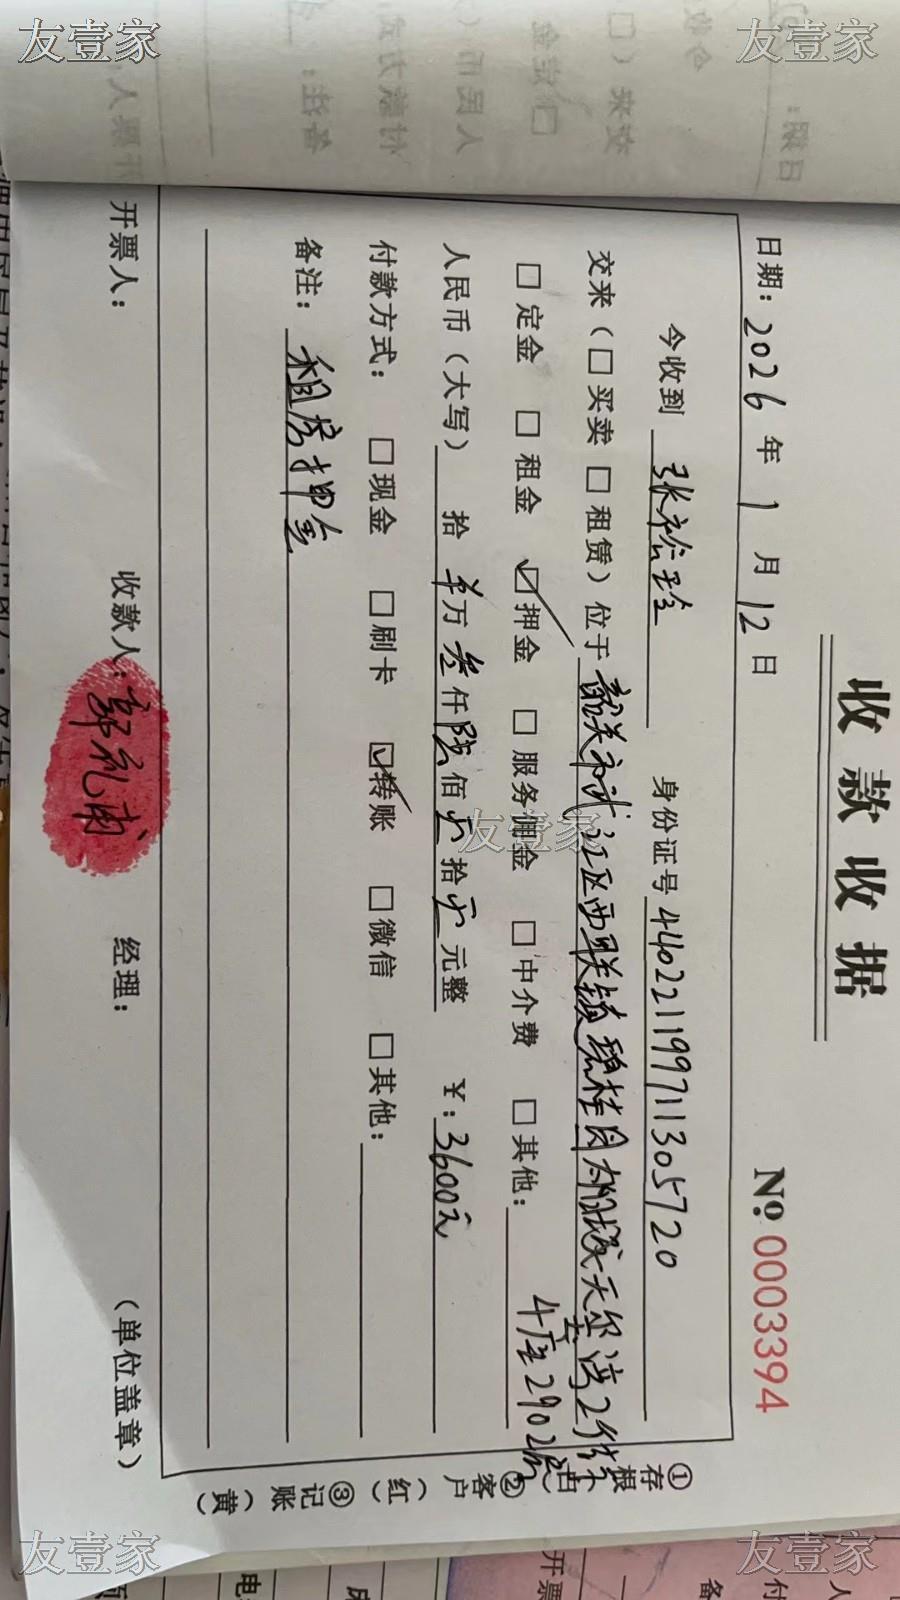 友壹家
友壹家
收款收据
No.0003394
日期：2026年1月12日
今收到 张裕玲 身份证号 440221199711305720
交来（□买卖□租赁）位于 韶关市武江区西联镇碧桂园太阳城天玺湾2街
4座2902房
□定金 □租金 ☑押金 □服务佣金 □中介费 □其他：
人民币（大写） 拾 万叁仟陆佰 拾 元整 ￥：3600元
付款方式： □现金 □刷卡 ☑转账 □微信 □其他：
备注： 租房押金
开票人： 收款人： 郭礼 经理： （单位盖章）
①存根（白）②客户（红）③记账（黄）
友壹家
友壹家
友壹家